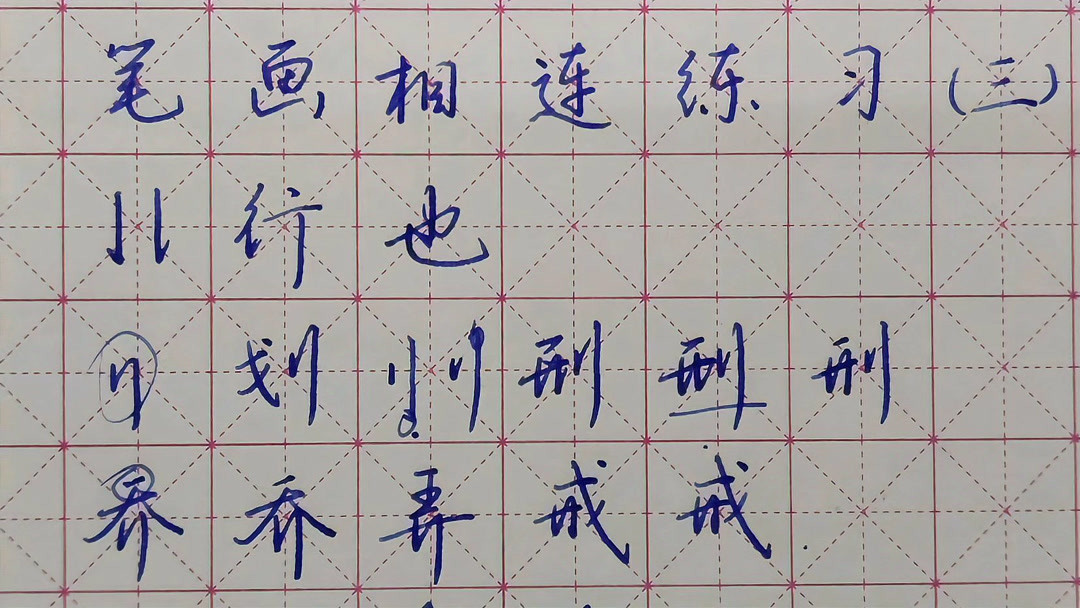 笔画相连练习(三)
川行也
刂划刂刂刑刑刑
乔乔弄戒戒